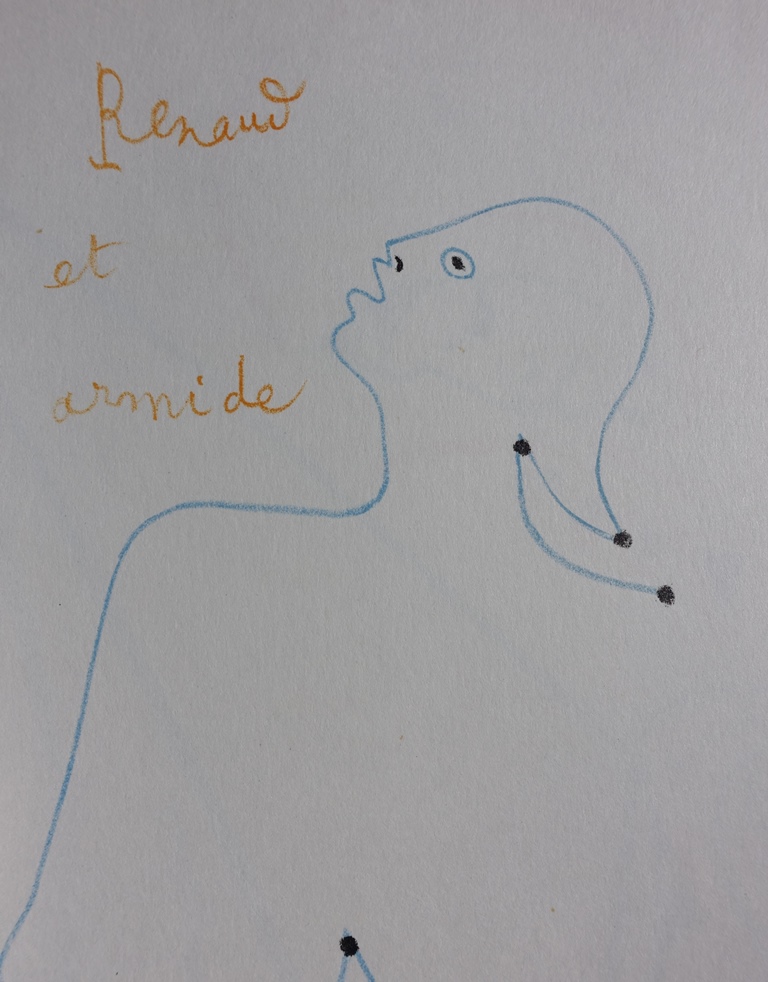 Renaud
et
armide